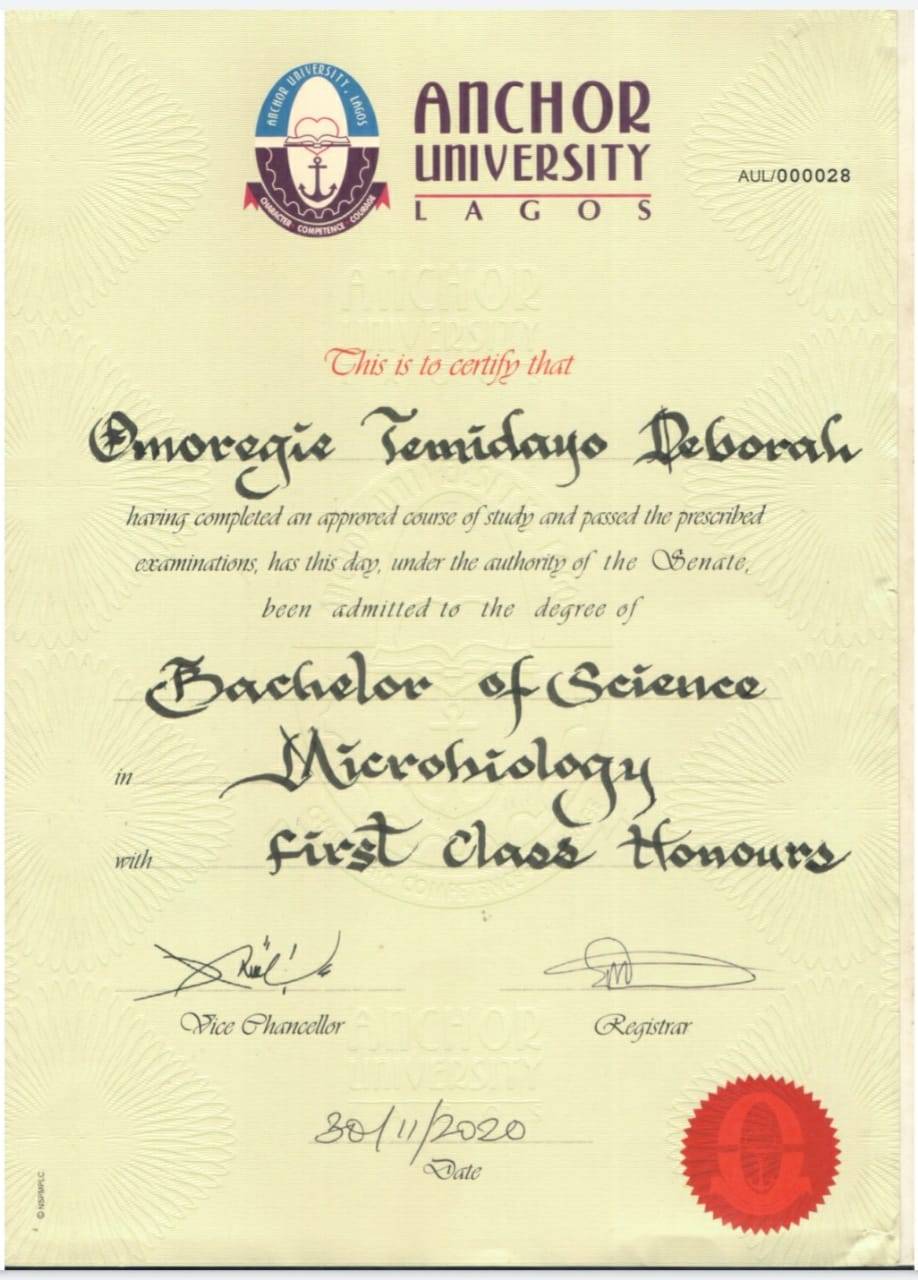 ANCHOR UNIVERSITY, LAGOS
CHARACTER · COMPETENCE · COURAGE
ANCHOR
UNIVERSITY
LAGOS
AUL/000028
ANCHOR
UNIVERSITY
This is to certify that
Omoregie Temidayo Deborah
having completed an approved course of study and passed the prescribed
examinations, has this day, under the authority of the Senate,
been admitted to the degree of
Bachelor of Science
in Microbiology
with First Class Honours
COMPETENCE
Vice Chancellor
Registrar
ANCHOR
UNIVERSITY
30/11/2020
Date
© NSPMPLC